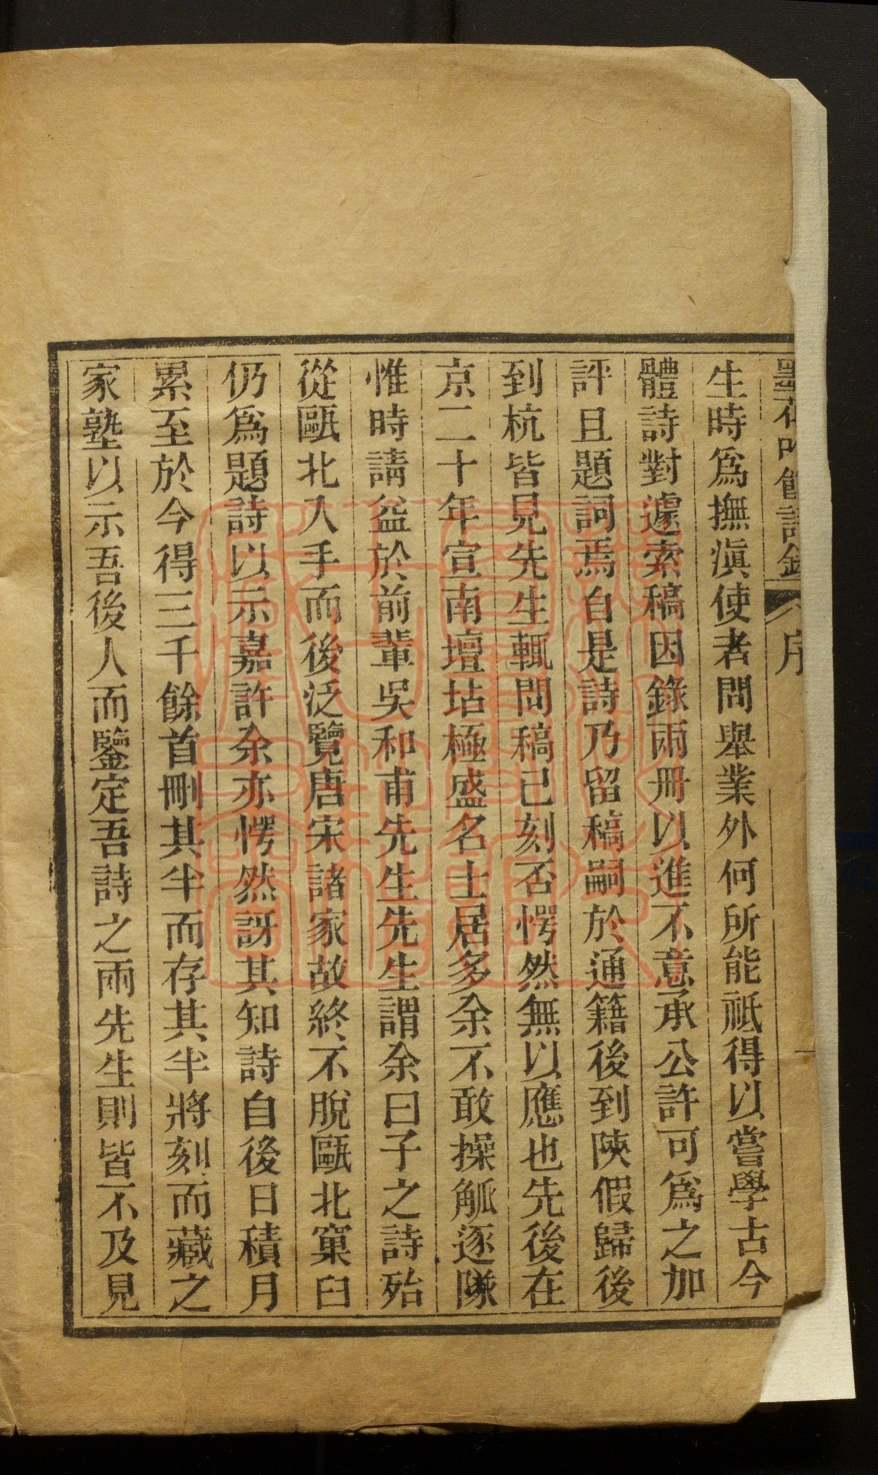 墨花吟館詩鈔 序
生時爲撫滇使者問舉業外何所能祗得以嘗學古今
體詩對遽索稿因錄兩冊以進不意承公許可爲之加
評且題詞焉自是詩乃留稿嗣於通籍後到陝假歸後
到杭皆見先生輒問稿已刻否愕然無以應也先後在
京二十年宣南壇坫極盛名士居多余不敢操觚逐隊
惟時請益於前輩吳和甫先生先生謂余曰子之詩殆
從甌北入手而後泛覽唐宋諸家故終不脫甌北窠臼
仍爲題詩以示嘉許余亦愕然訝其知詩自後日積月
累至於今得三千餘首刪其半而存其半將刻而藏之
家塾以示吾後人而鑒定吾詩之兩先生則皆不及見